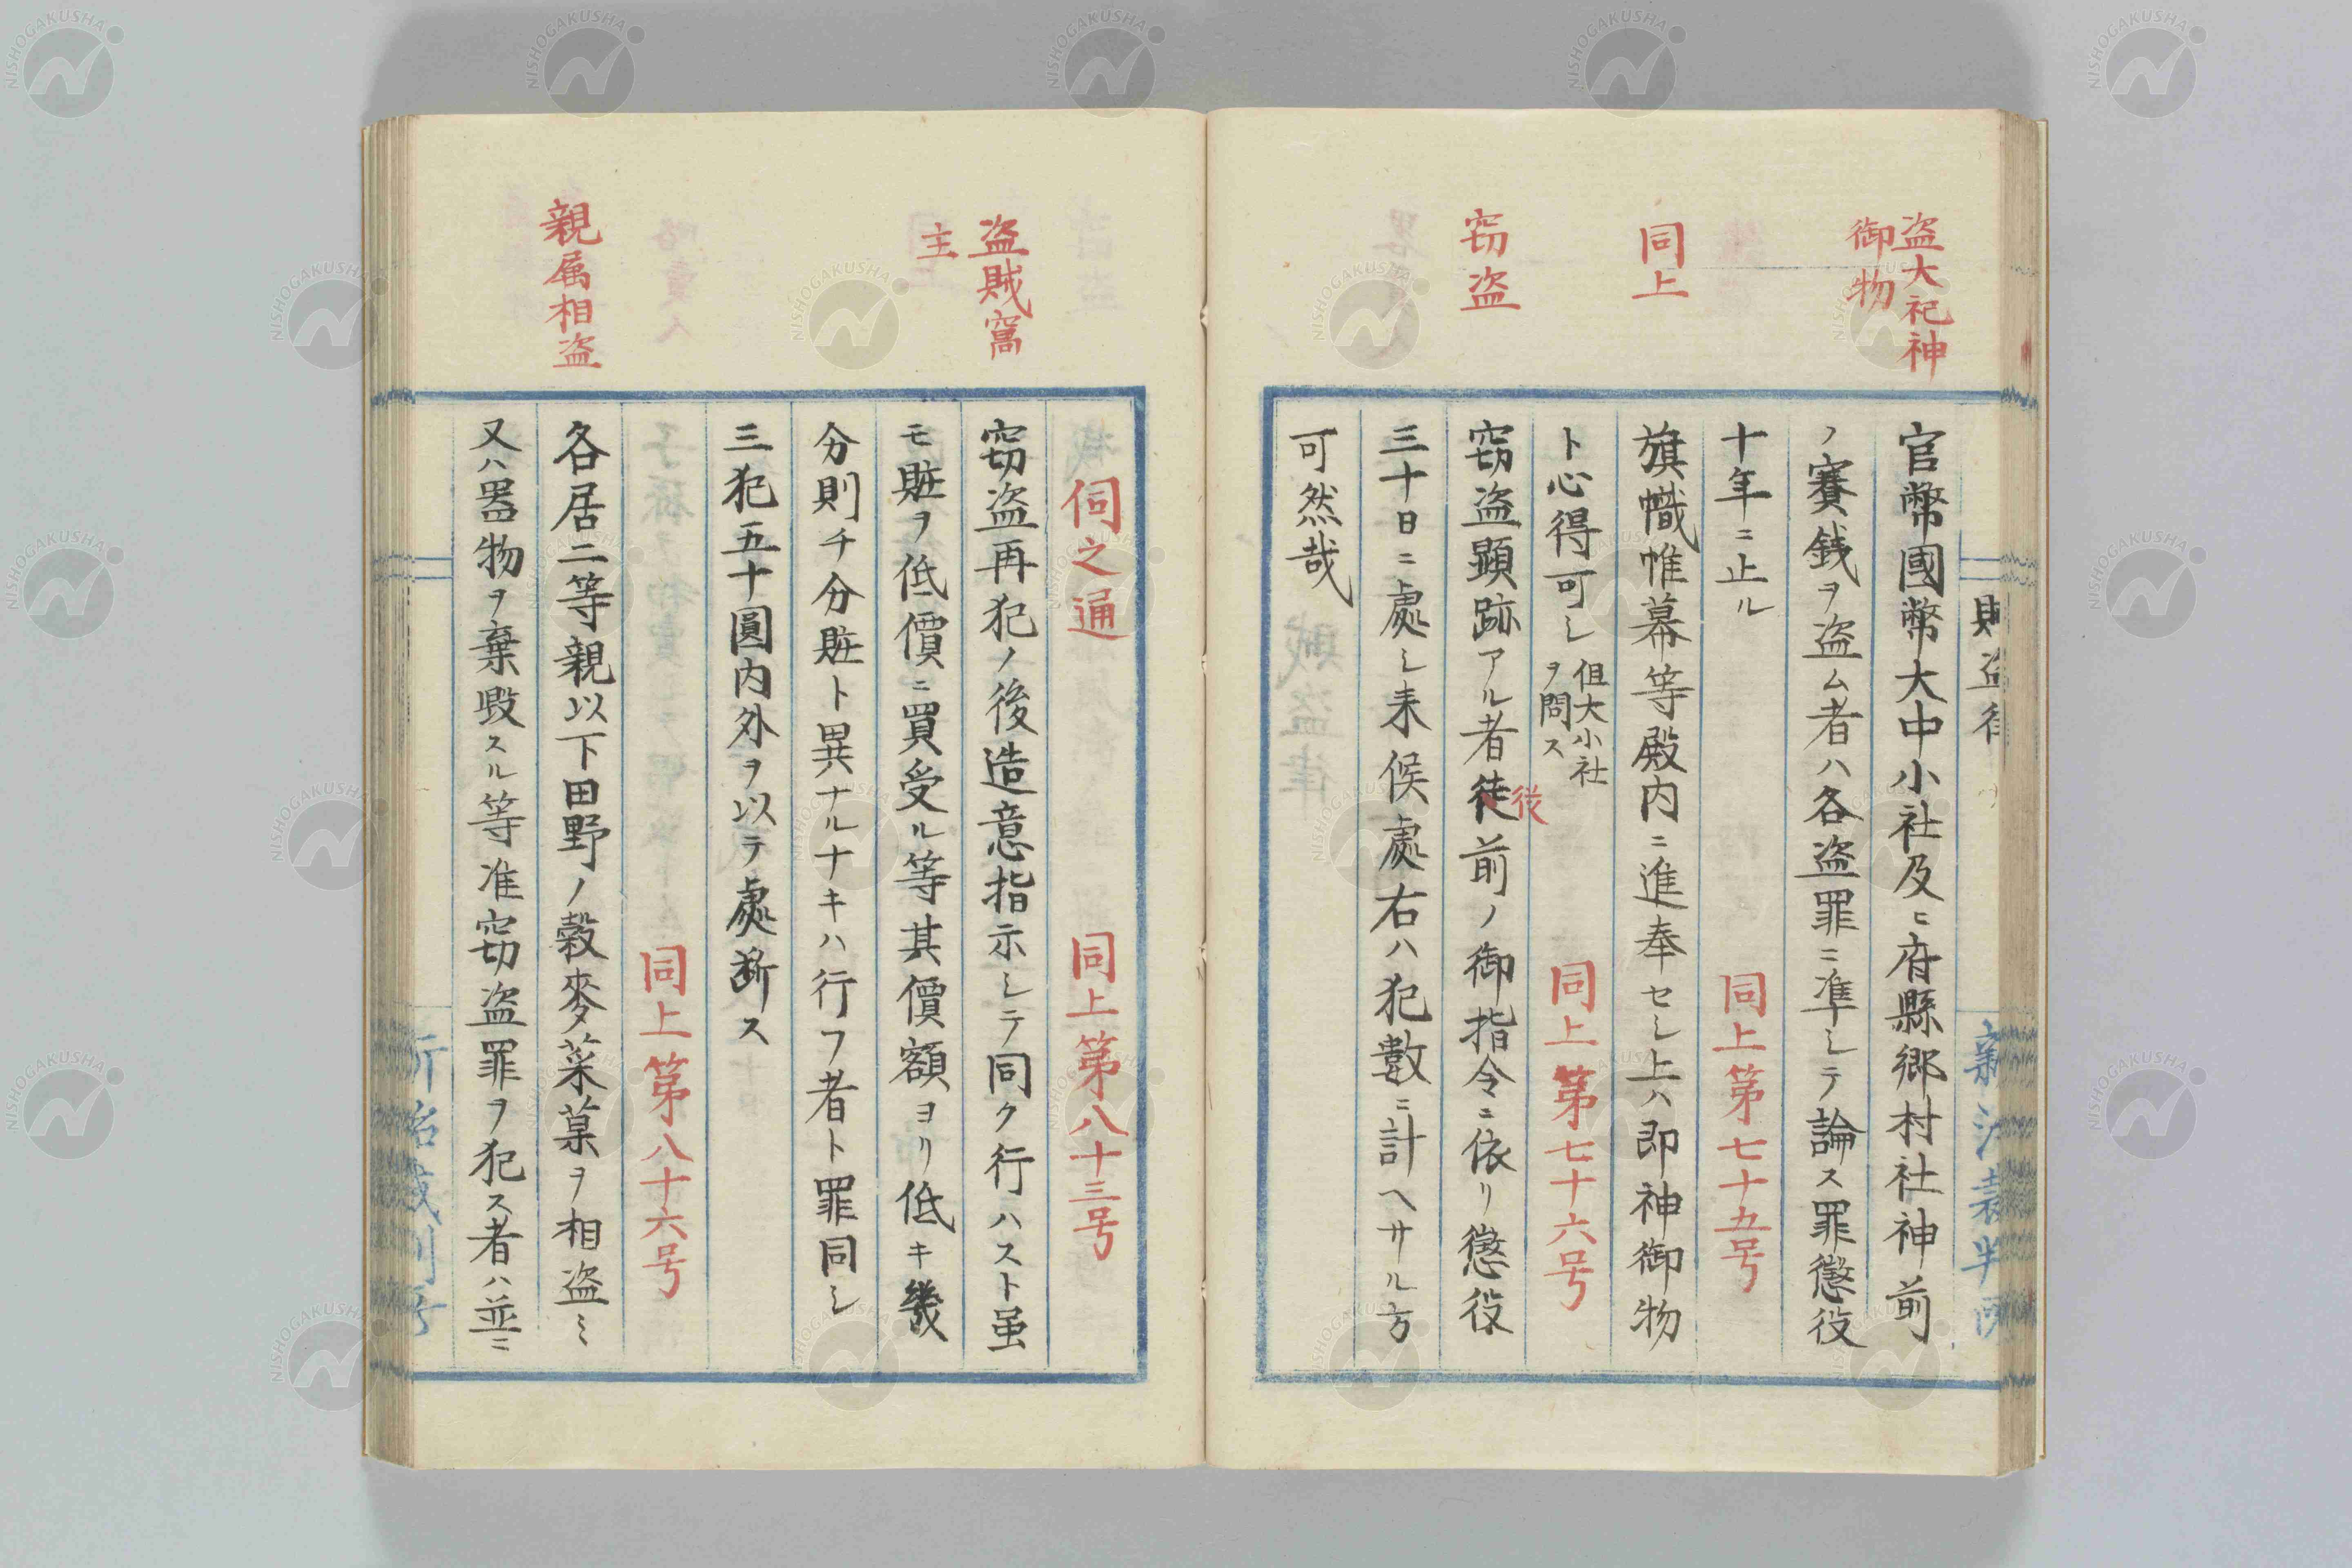 盗大祀神
御物
官幣國幣大中小社及ヒ府縣郷村社神前
ノ賽銭ヲ盗ム者ハ各盗罪ニ準シテ論ス罪懲役
十年ニ止ル
同上第七十五号
同上
旗幟帷幕等殿内ニ進奉セシ上ハ即神御物
ト心得可シ
但大小社
ヲ問ス
同上第七十六号
窃盗
窃盗顕跡アル者徒前ノ御指令ニ依リ懲役
従
三十日ニ處シ来候處右ハ犯數ニ計ヘサル方
可然哉
伺之通
同上第八十三号
盗賊窩
主
窃盗再犯ノ後造意指示シテ同ク行ハスト虽
モ賍ヲ低價ニ買受ル等其價額ヨリ低キ幾
分則チ分賍ト異ナルナキハ行フ者ト罪同シ
三犯五十圓内外ヲ以テ處断ス
同上第八十六号
親属相盗
各居二等親以下田野ノ穀麥菜菓ヲ相盗ミ
又ハ器物ヲ棄毀スル等准窃盗罪ヲ犯ス者ハ並ニ
NISHOGAKUSHA